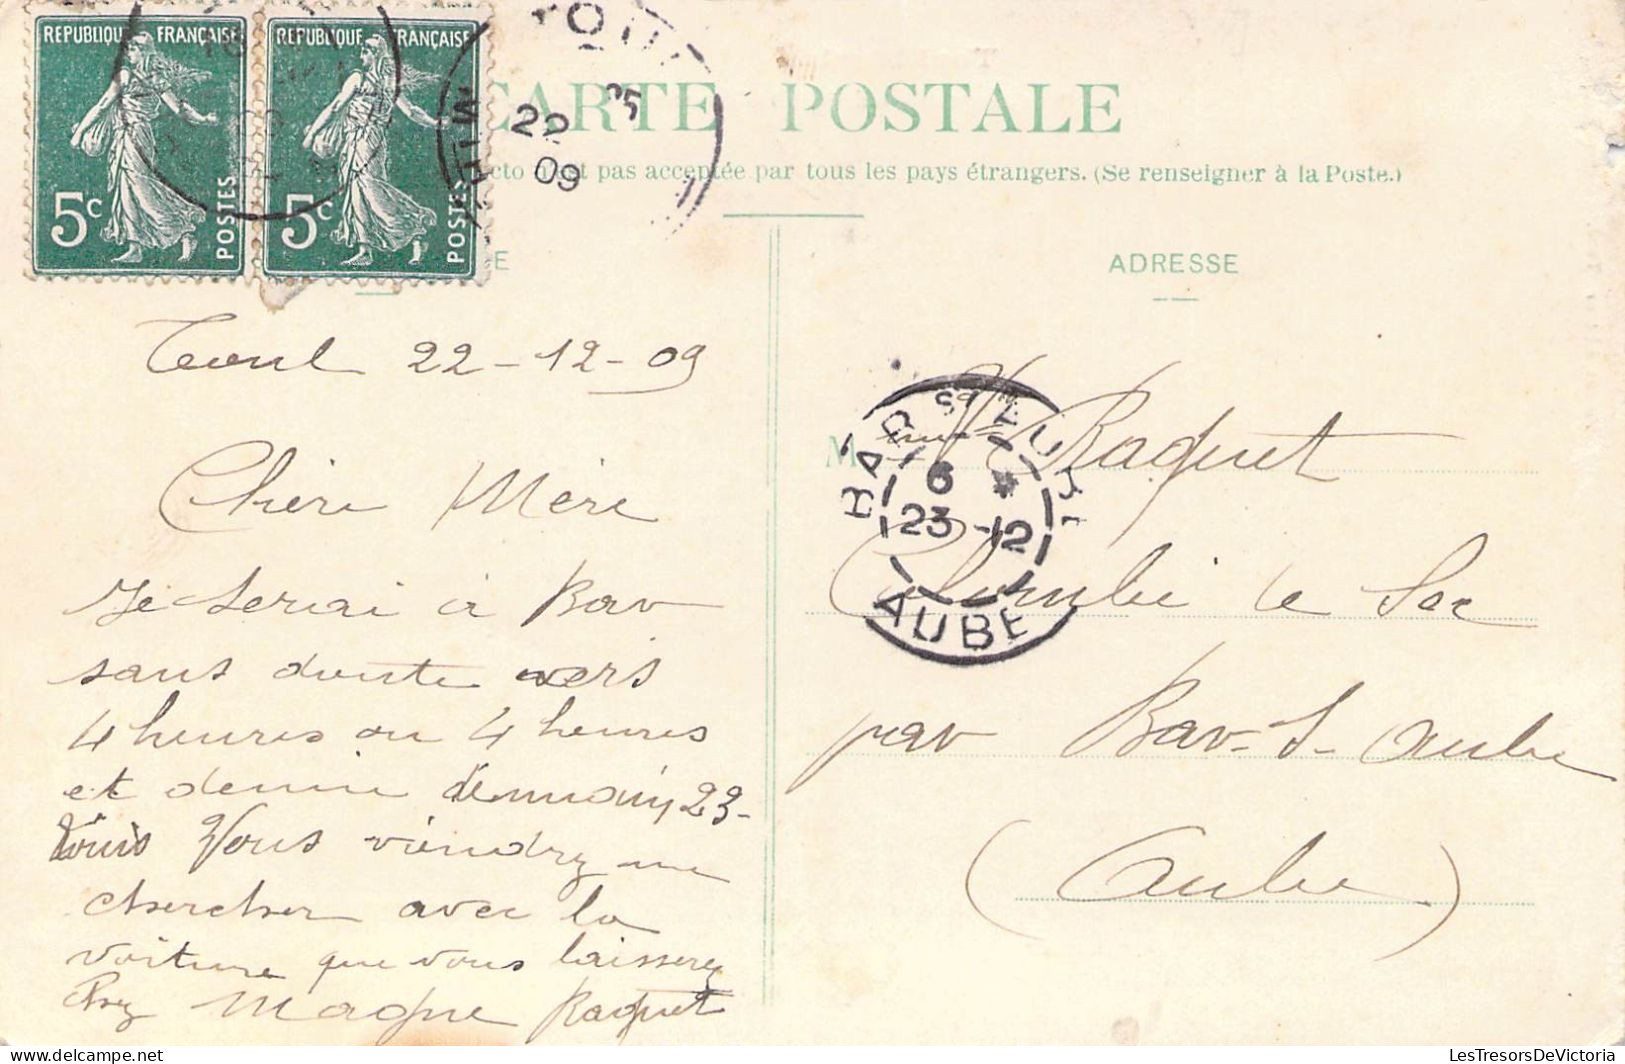 REPUBLIQUE FRANÇAISE
5c
POSTES
REPUBLIQUE FRANÇAISE
5c
POSTES
22
09
CARTE POSTALE
cto n'est pas acceptée par tous les pays étrangers. (Se renseigner à la Poste.)
ADRESSE
Toul 22-12-09
Chère Mère
Je serai à Bar
sans doute vers
4 heures ou 4 heures
et demie demain 23-
Vous viendrez me
chercher avec la
voiture que vous laisserez
chez Magne Raguet
Mme Vve Raguet
Colombé le Sec
par Bar-S-Aube
(Aube)
BAR S AUBE
6 *
23 -12
AUBE
LesTresorsDeVictoria